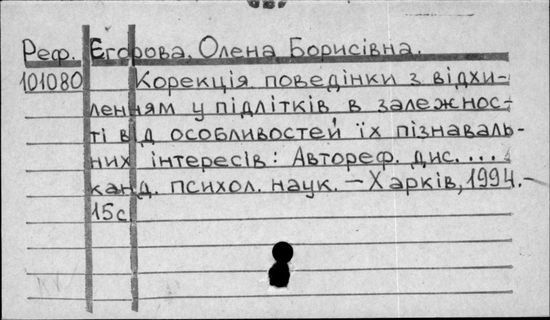 Реф. Єгорова, Олена Борисівна.
101080 Корекція поведінки з відхи-
ленням у підлітків в залежнос-
ті від особливостей їх пізнаваль-
них інтересів: Автореф. дис. ...
канд. психол. наук. – Харків, 1994. –
15с.